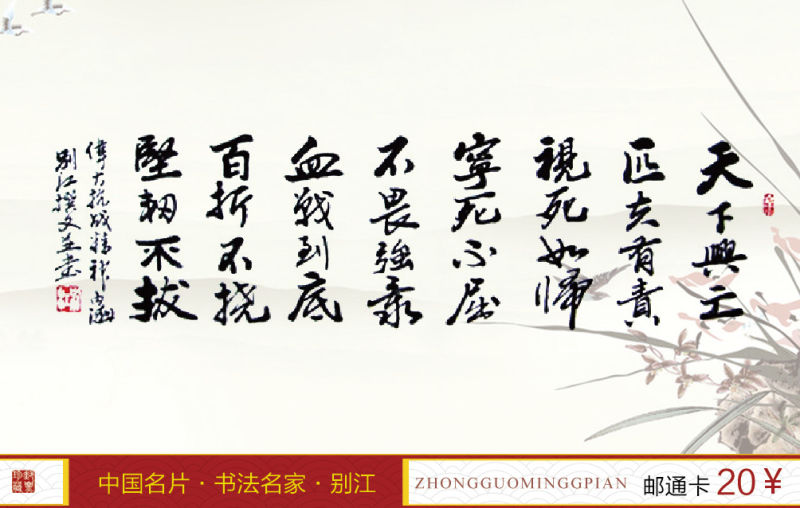 天下興亡
匹夫有責
視死如歸
寧死不屈
不畏強暴
血戰到底
百折不撓
堅韌不拔
偉大抗战精神内涵
别江撰文並书
中国名片·书法名家·别江
ZHONGGUOMINGGPIAN
邮通卡 20¥